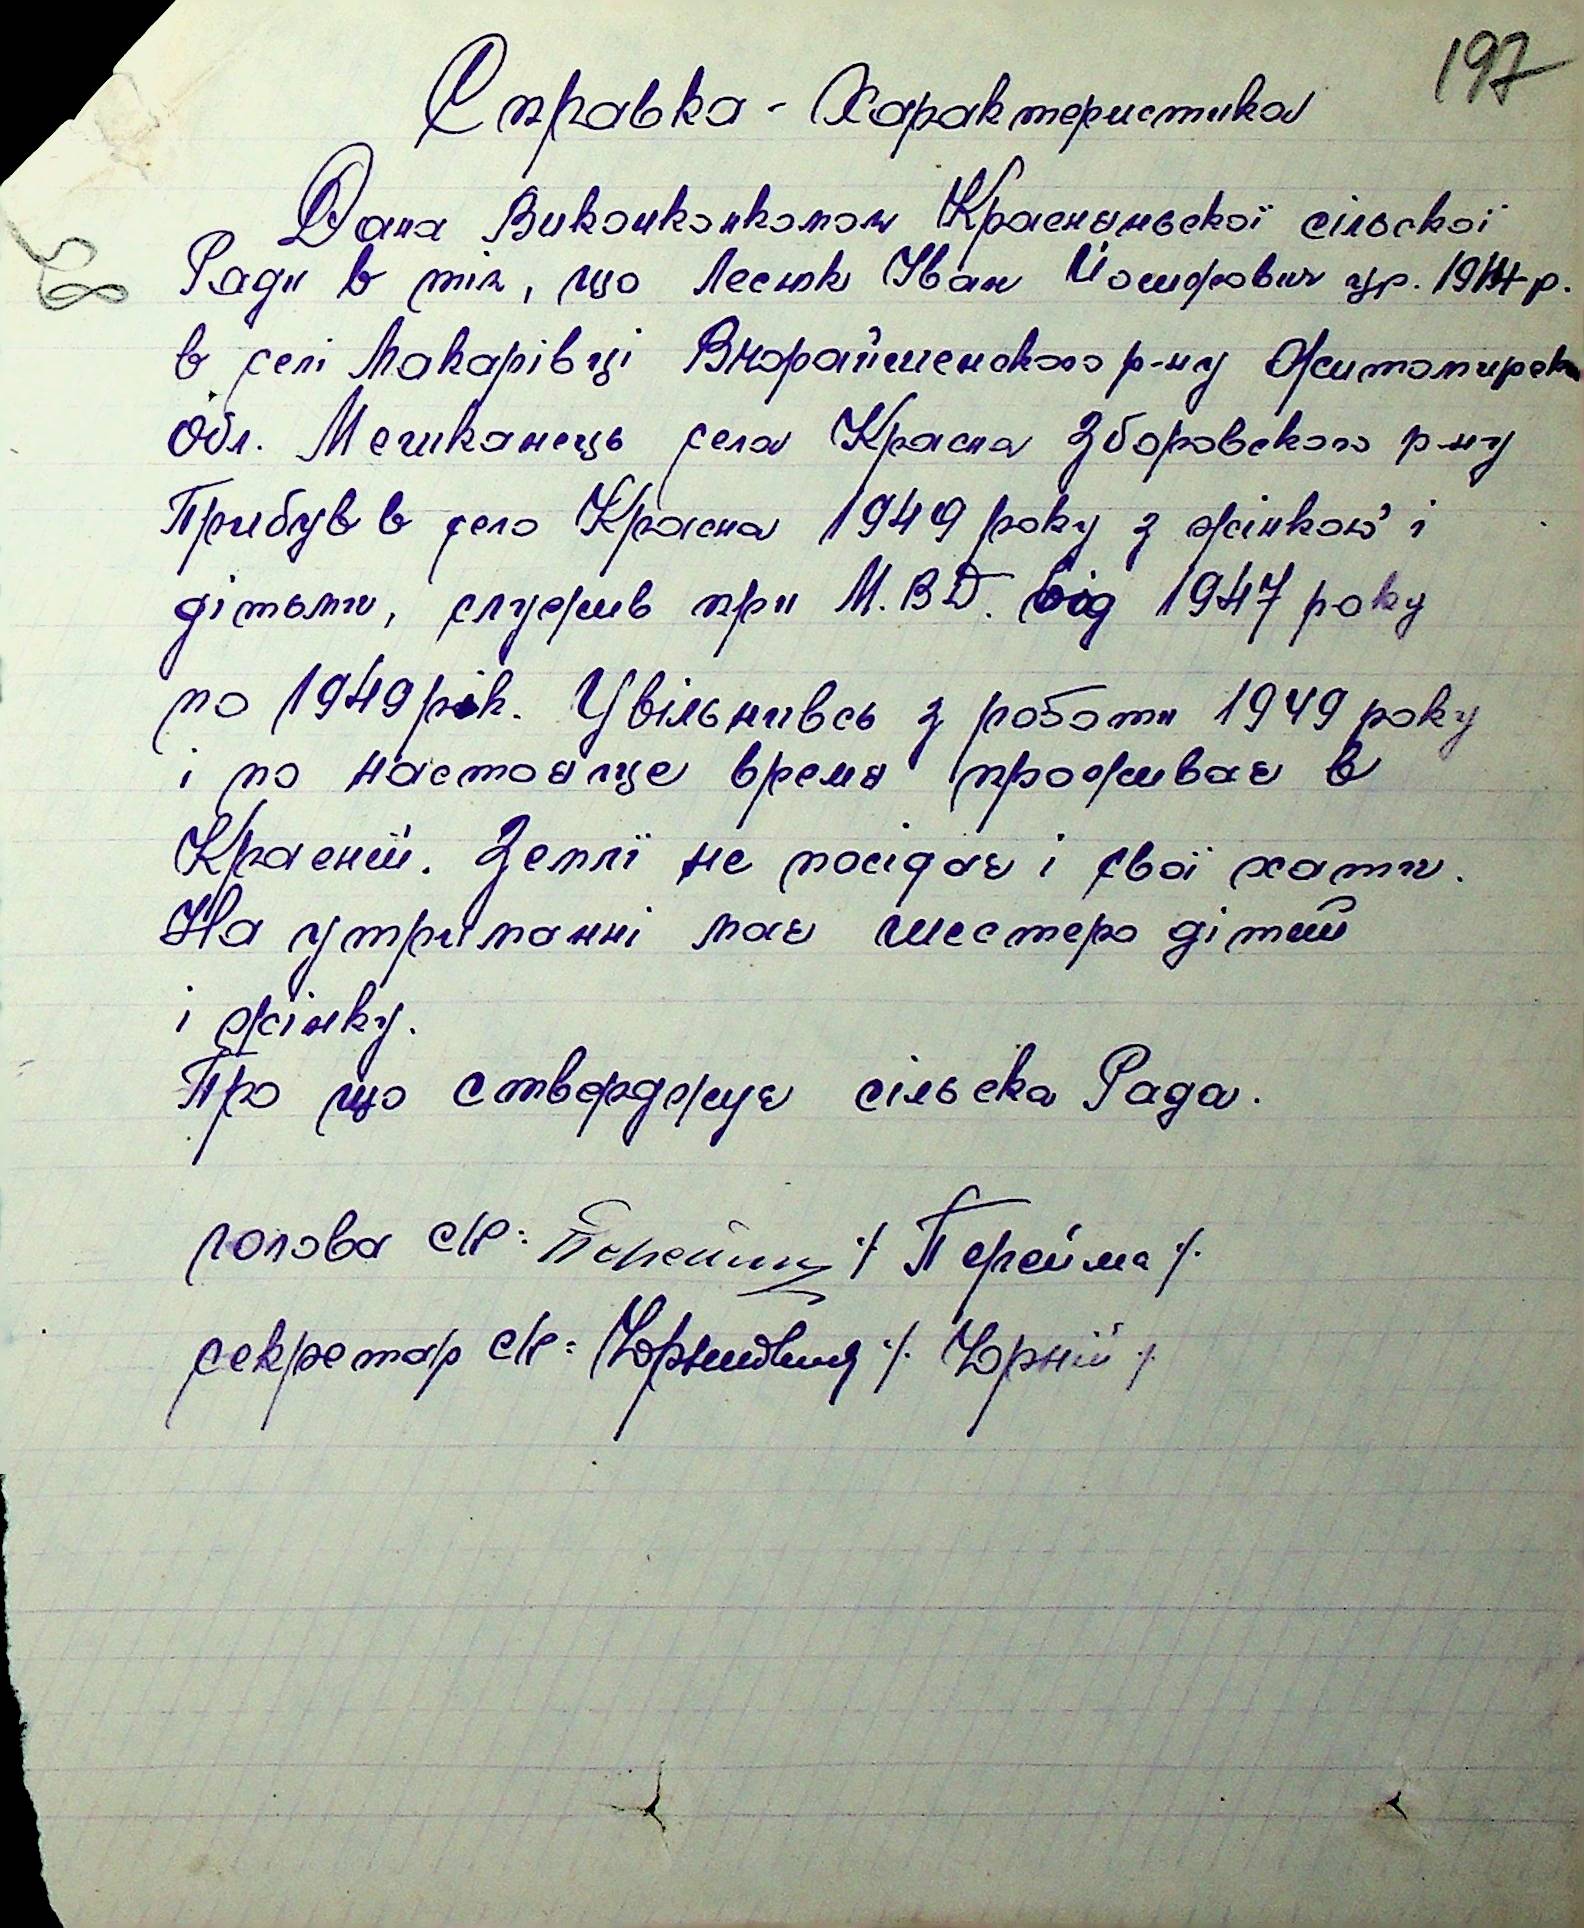 197
Справка - Характеристика
Дана Виконконкомом Краснянської сільської
Ради в тім, що Лесюк Іван Йосифович ур. 1914 р.
в селі Макарівці Вчорайшенского р-ну Житомирск
Обл. Мешканець села Красна Зборовского р-ну
Прибув в село Красна 1949 року з жінкою і
дітьми, служив при М.В.Д. від 1947 року
по 1949 рік. Увільнивсь з роботи 1949 року
і по настояще время проживає в
Красній. Землї не посідає і свої хати.
На утриманні має шестеро дітий
і жінку.
Про що стверджує сільска Рада.
голова с/р: /Перейма/.
секретар с/р: /. Чорній /.